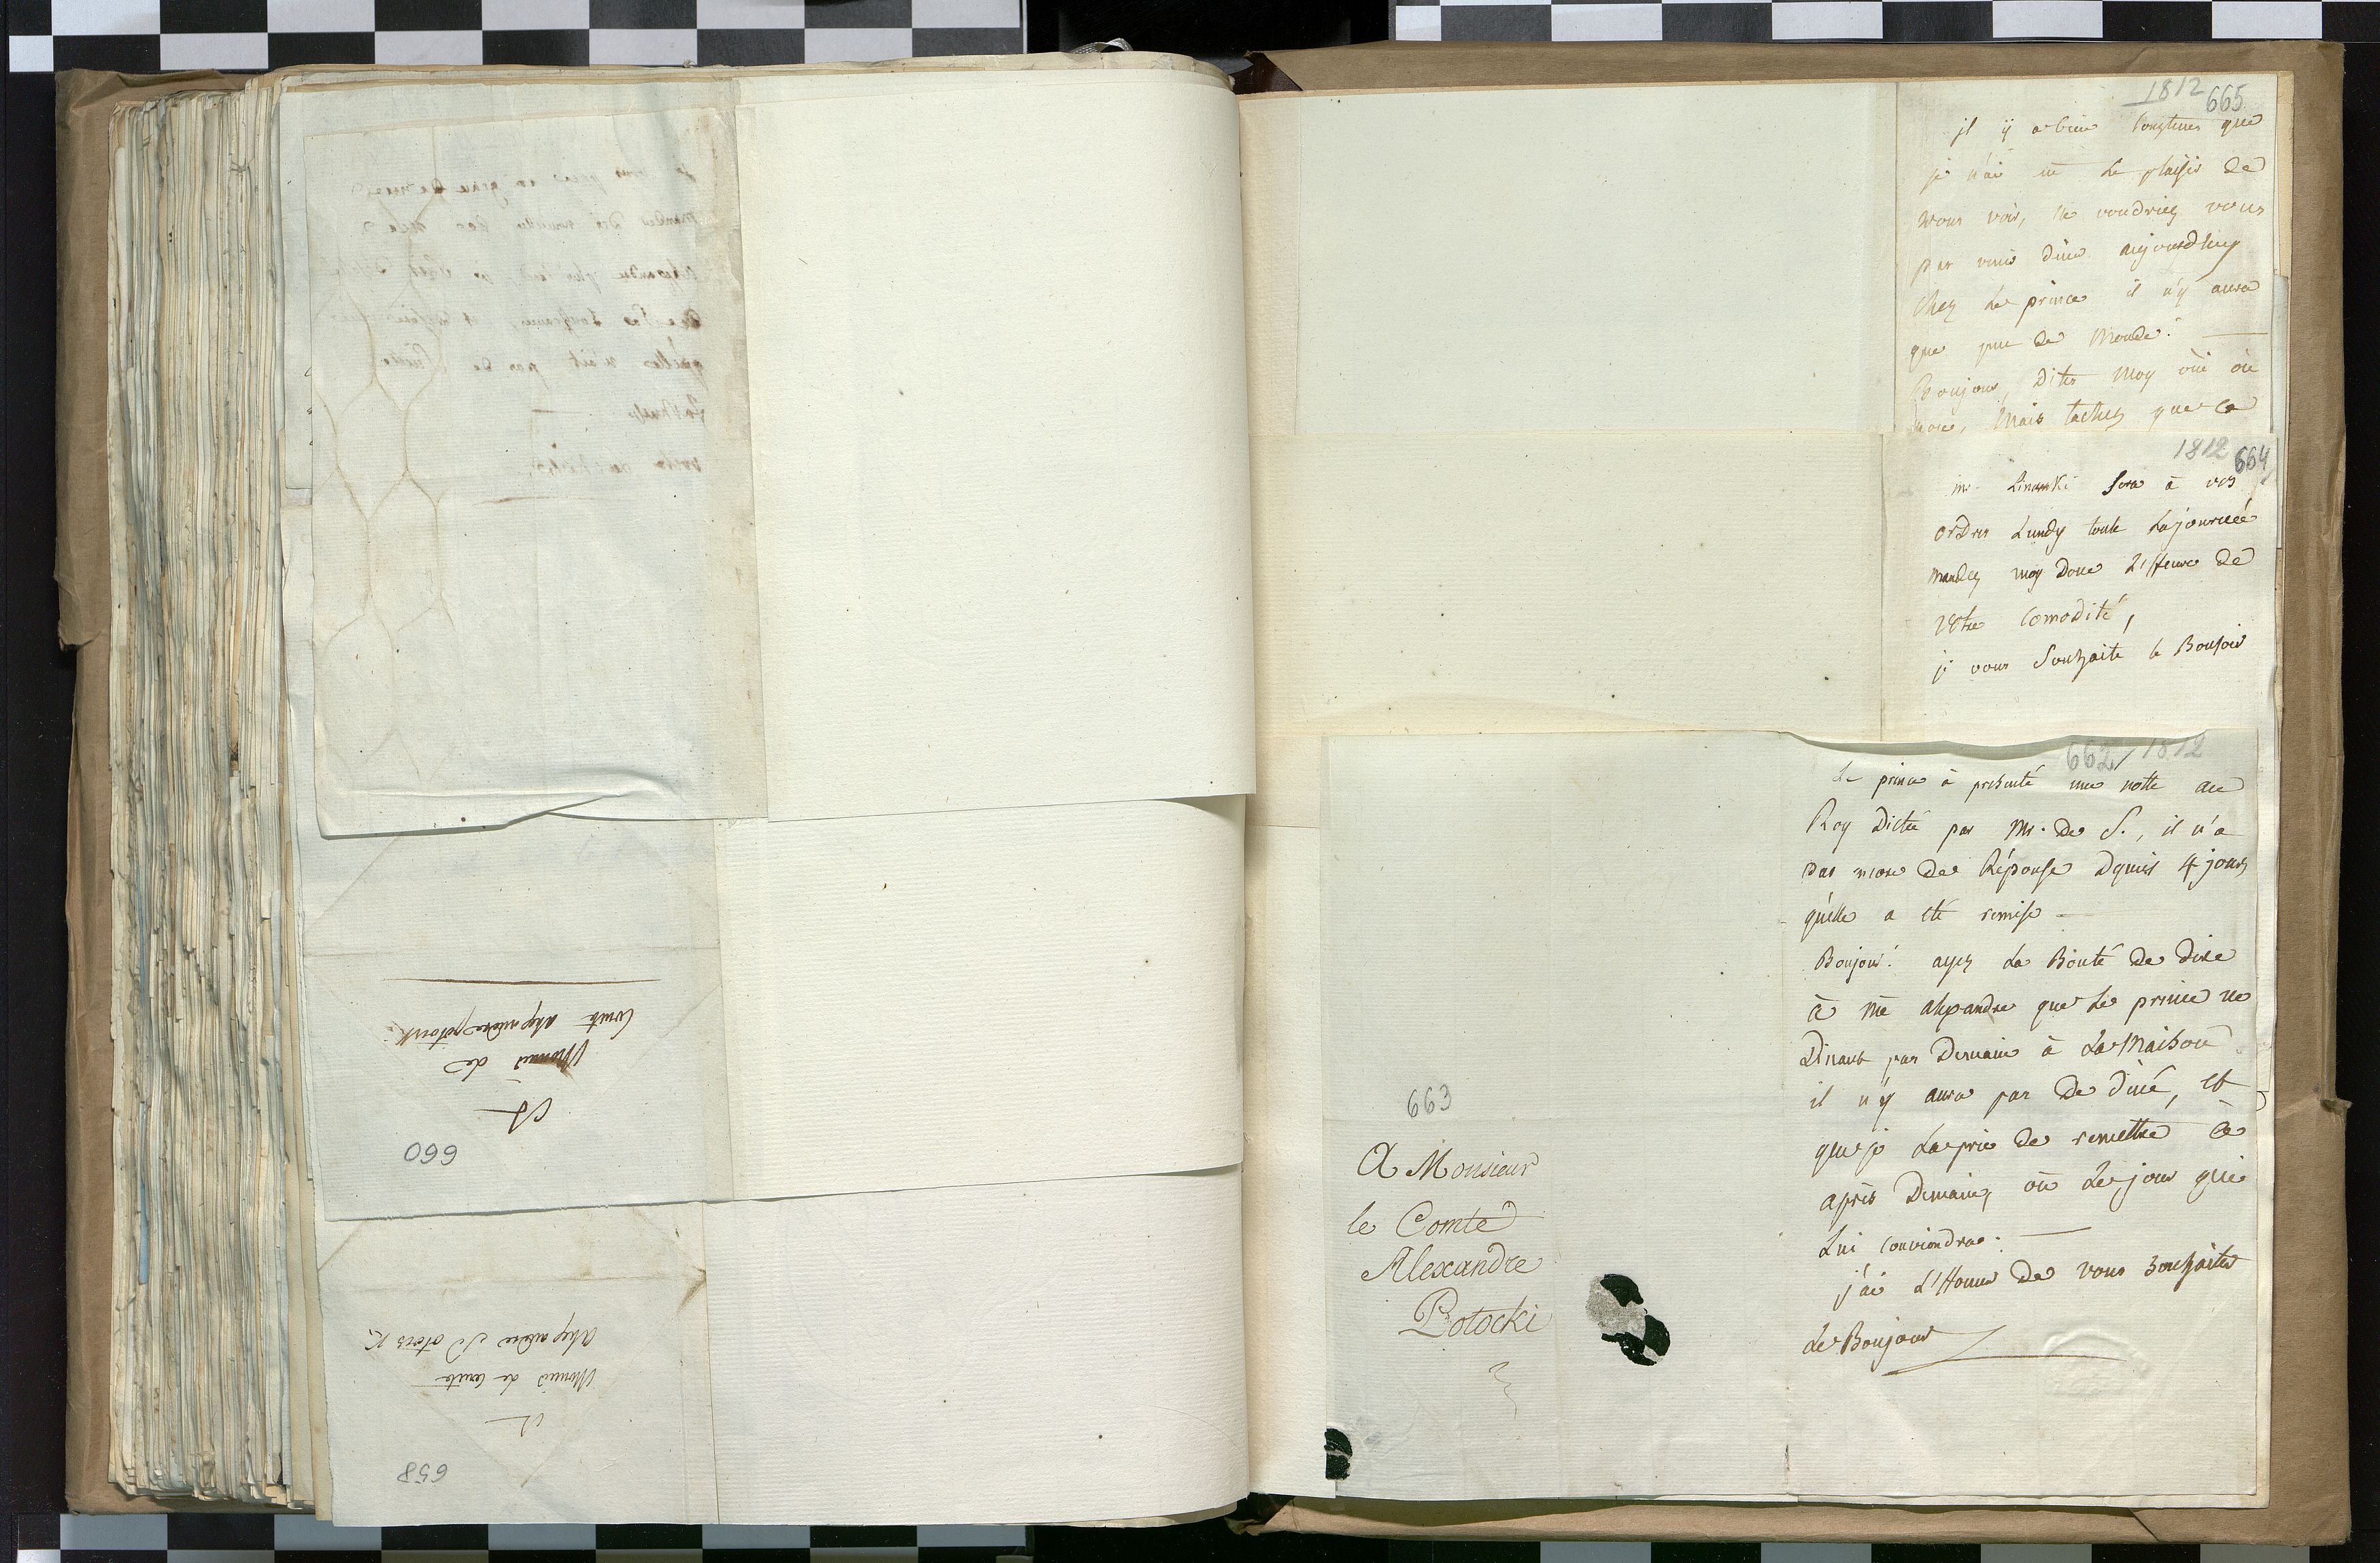 660
A
Monsi de
Comte alexandre potocki
658
A
Monsi de Comte
Alexandre Potocki
1812 665
jl ÿ a bien longtems que
je n'ai eu Le plaisir de
vous voir, ne voudriez vous
pas venir diner aujourdhuy
chez Le prince il n'y aura
que peu de Monde. —
Boujour, Dites moy oüi où
non, Mais tachez que ce
1812 664
Mr. Linowski sera à vos
ordres Lundy toute La journée
mandez moy Donc L'Heure de
votre comodité,
je vous Souhaite le Bonsoir
662 / 1812
Le prince à présenté une notte au
Roy Dictée par Mr. De S., il n'a
pas encore De Réponse Dépuis 4 jours
qu'elle a été remise —
Boujour! ayez La Bonté De Dire
à Me alexandre que Le prince ne
Dinant pas Demain à La Maison
il n'y aura pas De diné, et
que je La prie De remettre à
après Demain, où Le jour qui
Lui conviendra. —
j'ai L'Honneur De vous Souhaiter
Le Boujour
663
A Monsieur
le Comte
Alexandre
Potocki